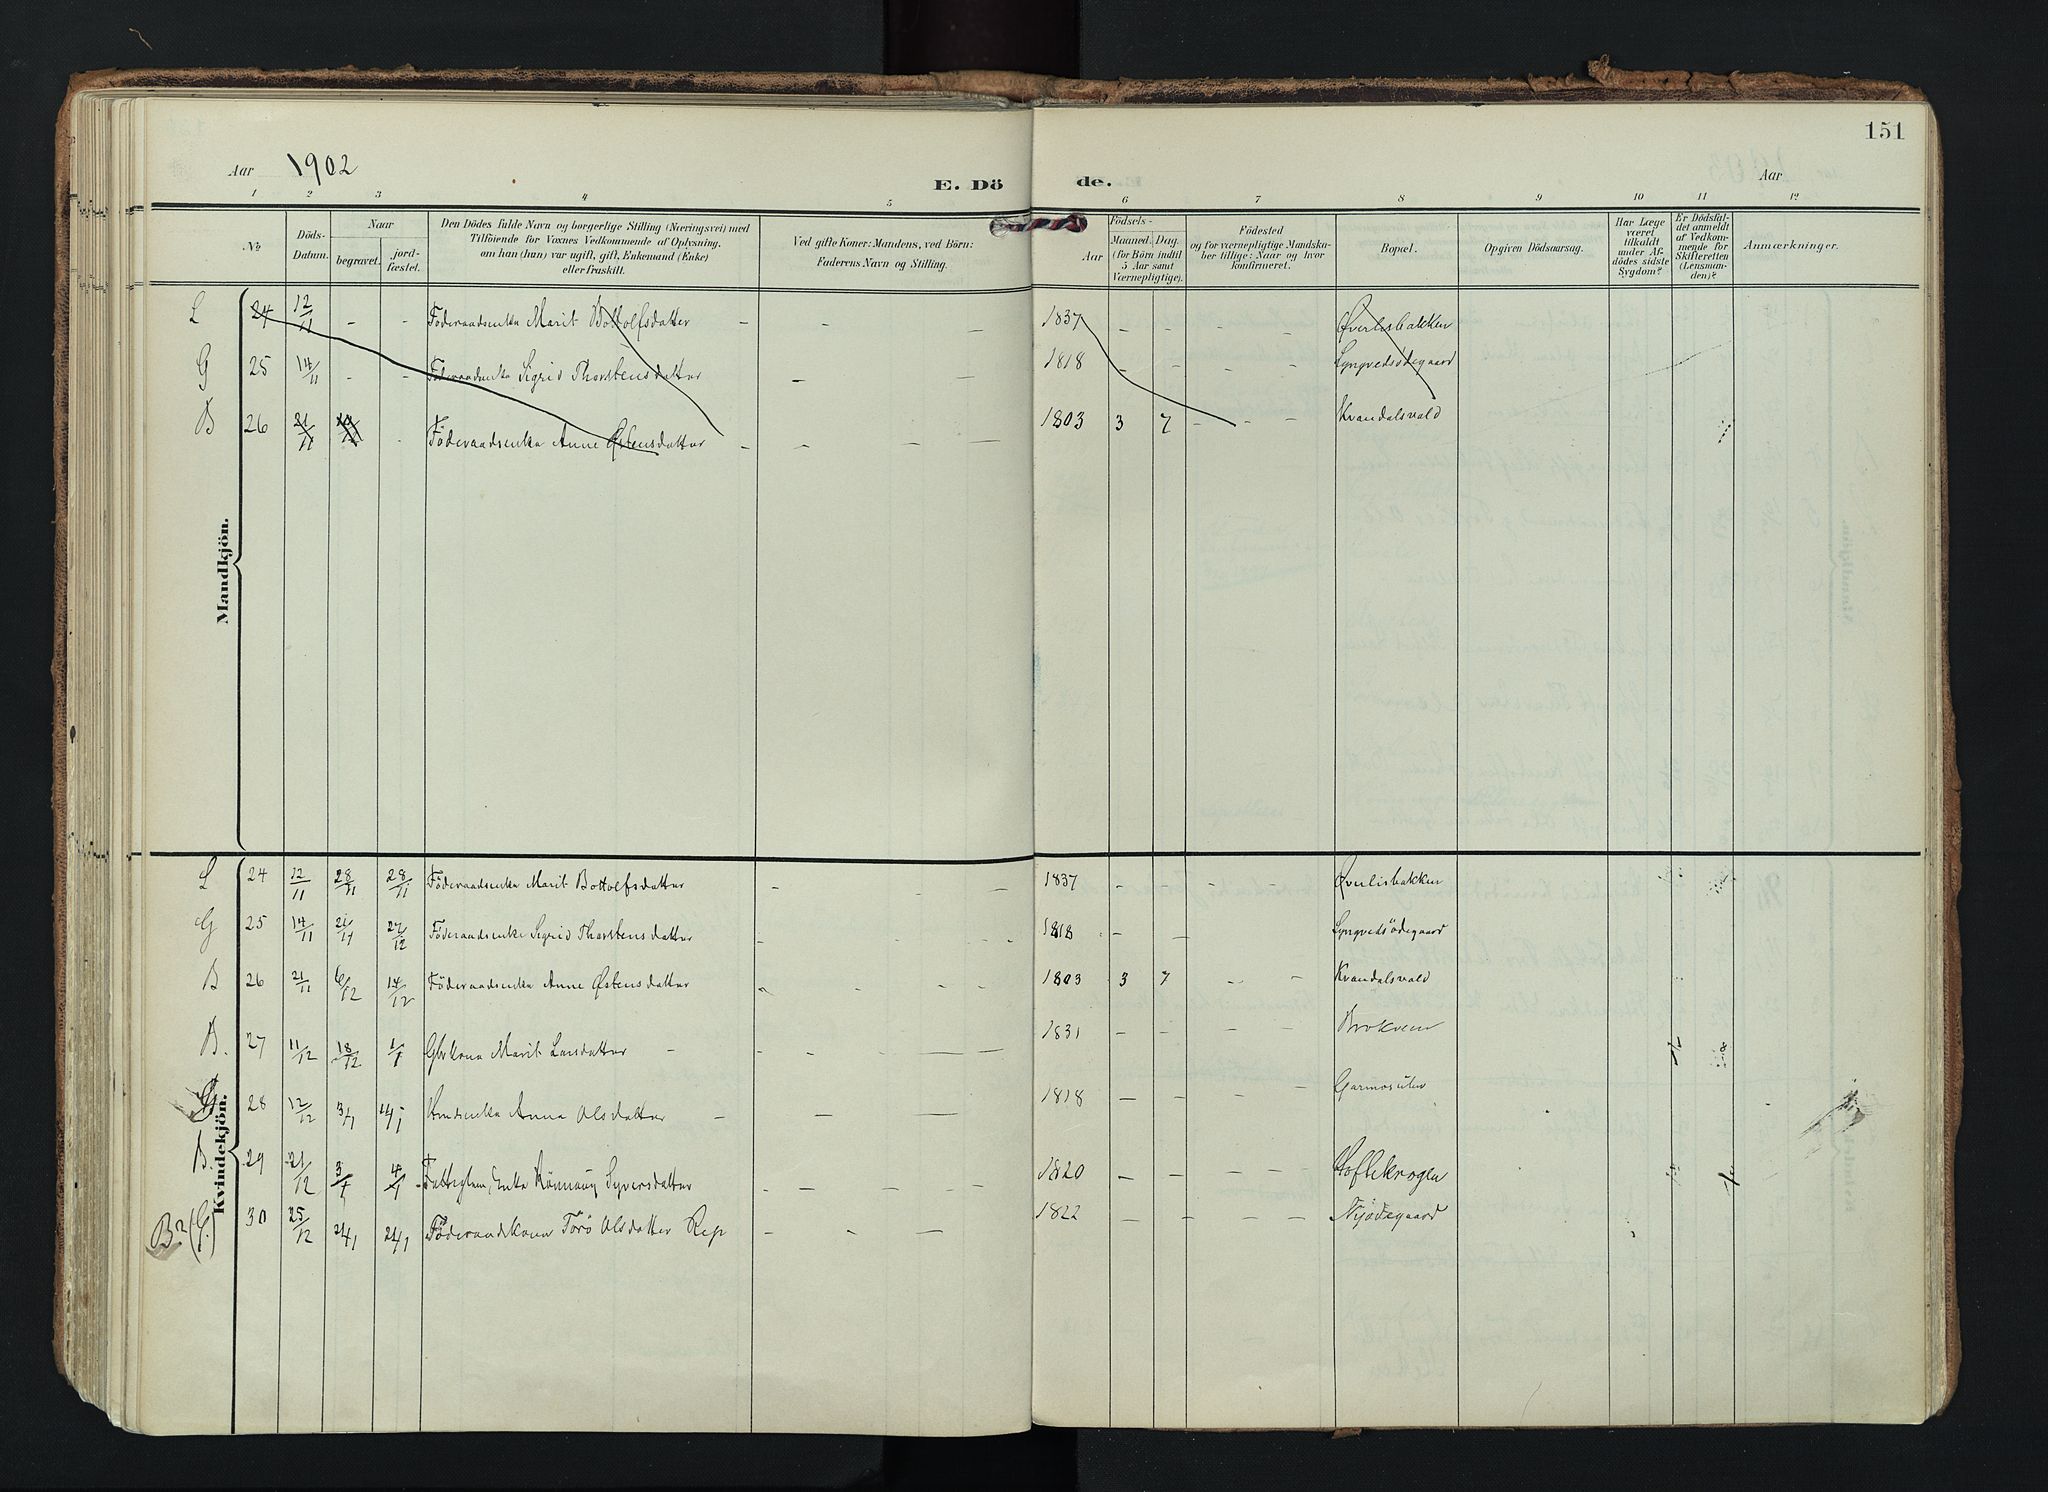 151
Aar 1902
E. Dö de.
Aar
1 2 3 4 5 6 7 8 9 10 11 12
No
Döds-Datum.
Naar
begravet.
jordfæstet.
Den Dödes fulde Navn og borgerlige Stilling (Næringsvei) med
Tilföiende for Voxnes Vedkommende af Oplysning,
om han (hun) var ugift, gift, Enkemand (Enke)
eller fraskilt.
Ved gifte Koner: Mandens, ved Börn:
Faderens Navn og Stilling.
Födsels-
Aar
Maaned. Dag.
(for Börn indtil
5 Aar samt
Værnepligtige).
Födested
og for værnepligtige Mandskaber tillige: Naar og hvor
konfirmeret.
Bopæl.
Opgiven Dödsaarsag.
Har Læge
været
tilkaldt
under Afdödes sidste
Sygdom?
Er Dödsfaldet anmeldt
af Vedkommende for
Skifteretten
(Lensmanden)?
Anmærkninger.
Mandkjön.
L 24 12/11 - - Föderaadsenke Marit Bottolfsdatter - - - 1837 - - - - Øverlisbakken
G 25 14/11 - - Föderaadsenke Sigrid Thorstensdatter - - 1818 - - - - Lyngvedsödegaard
B 26 21/11 - Föderaadsenke Anne Østensdatter - - - - 1803 3 7 - - - Kvandalsvald
Kvindekjön.
L 24 12/11 28/11 28/11 Föderaadsenke Marit Bottolfsdatter - - - 1837 - - - - Øverlisbakken
G 25 14/11 21/11 Föderaadsenke Sigrid Thorstensdatter - - - - 1818 - - Lyngvedsödegaard
B 26 21/11 6/12 14/12 Föderaadsenke Anne Østensdatter - - - - 1803 3 7 - - Kvandalsvald
B. 27 11/12 18/12 1/1 Gbrkona Marit Larsdatter - - - - - - 1831 - - - - Brokvern
G 28 12/12 3/1 4/1 Husenke Anna Olsdatter - - - 1818 - - - - Garmosuten
B. 29 21/12 3/1 4/1 Fattiglem, Enke Rönnaug Syversdatter - - - - - 1820 - - - - - Hoflekrogen
B? (G.) 30 25/12 24/1 24/1 Föderaadskona Törö Olsdatter Rep - - - 1822 - - - - - Nyödegaard